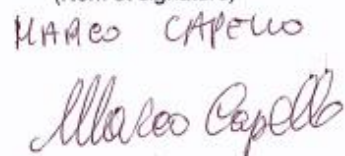 MARCO CAPELLO
Marco Capello